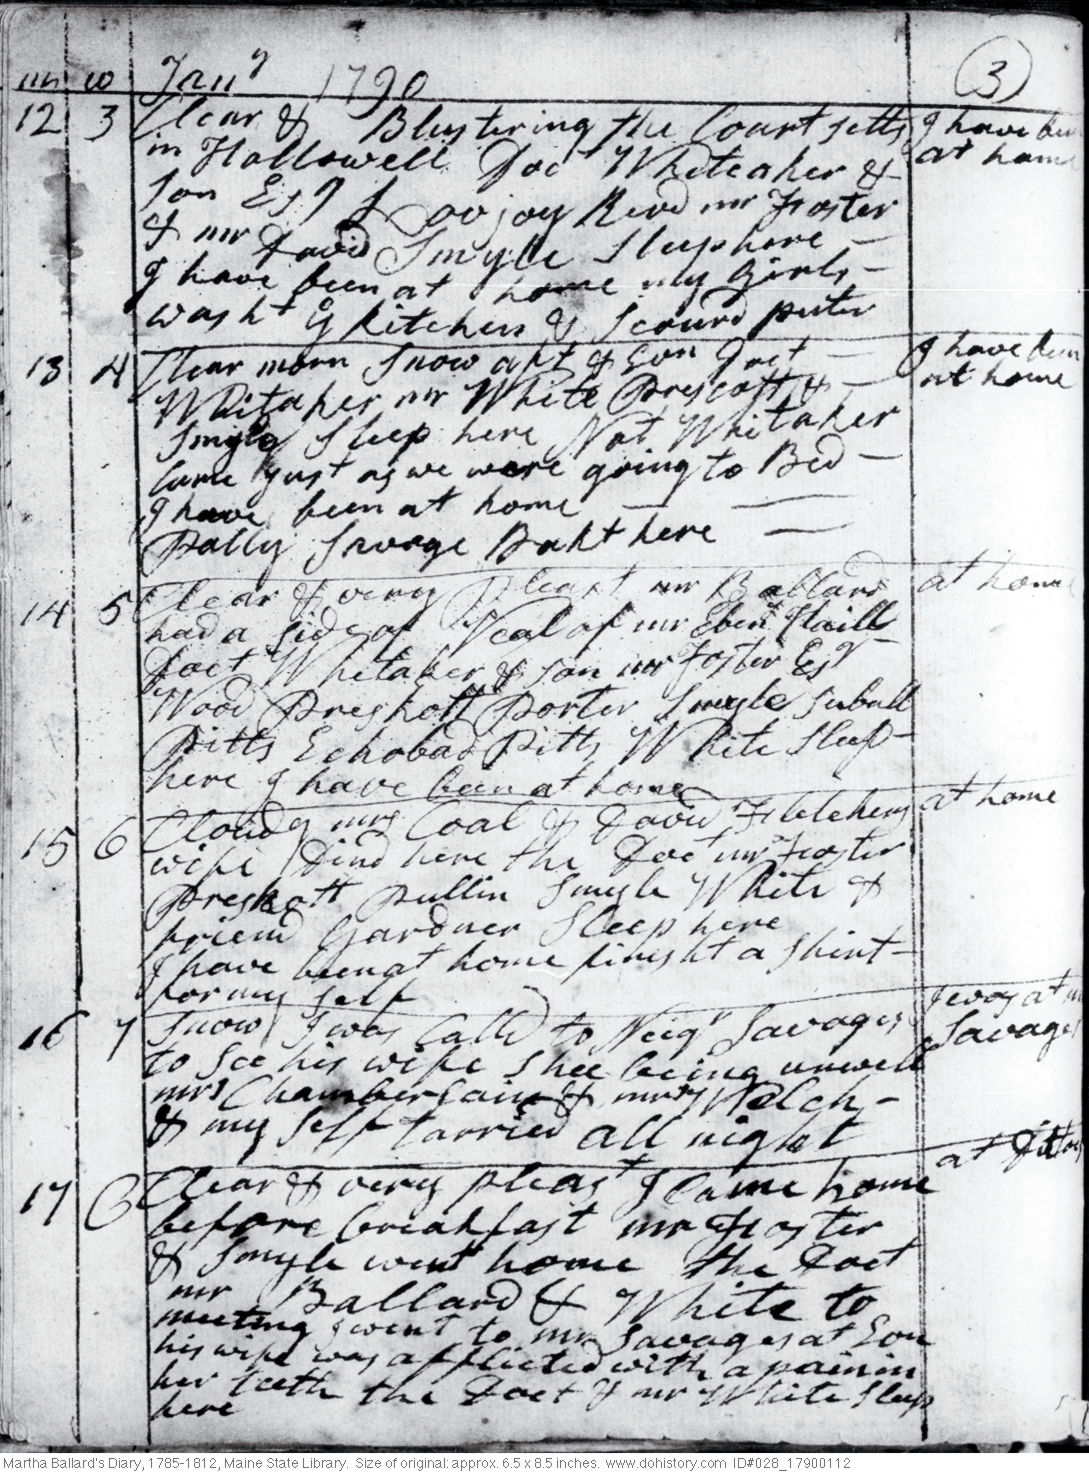 mh w Jan^y 1790 3
12 3 Clear & Blustering the Court setts I have been
in Hallowell Doc^t Whiteaker & at home
son Esq^r Lovjoy Revd mr Foster
& mr David Smyle Sleep here –
I have been at home my girls –
washt y kitchen & scourd puter
13 4 Clear morn Snow aft & Evn Doct – I have been
Whitaker mr White Prescott & – at home
Smyle Sleep here Nat Whitaker
Came just as we were going to Bed –
I have been at home –
Polly Savage Bakt here –
14 5 Clear & very Pleast mr Ballard at home
had a side of Veal of mr Eben^r
Doct Whitaker & son mr Foster Esq^r
Wood Preskott Porter Smyle Suball
Pitts Echobad Pitts White Sleep –
here I have been at home
15 6 Cloudy mrs Coal & David Fletchers at home
wife Dind here the Doct mr Foster
Preskott Pullin Smyle White &
friend Gardner Sleep here
I have been at home finisht a Shirt –
for my self
16 7 Snow I was Calld to Neig^r Savages I was at mr
to see his wife Shee being unwell Savages
mrs Chamberlain & mrs Welch –
& my self tarried all night
17 C Clear & very pleast I Came home at Dittoes
before breakfast mr Foster
& Smyle went home the Doct
mr Ballard & White to
meeting I went to mr Savages at Evn
his wife was afflicted with a pain in
her teeth the Doct & mr White Sleep
here
Martha Ballard's Diary, 1785-1812, Maine State Library. Size of original: approx. 6.5 x 8.5 inches. www.dohistory.com ID#028_17900112